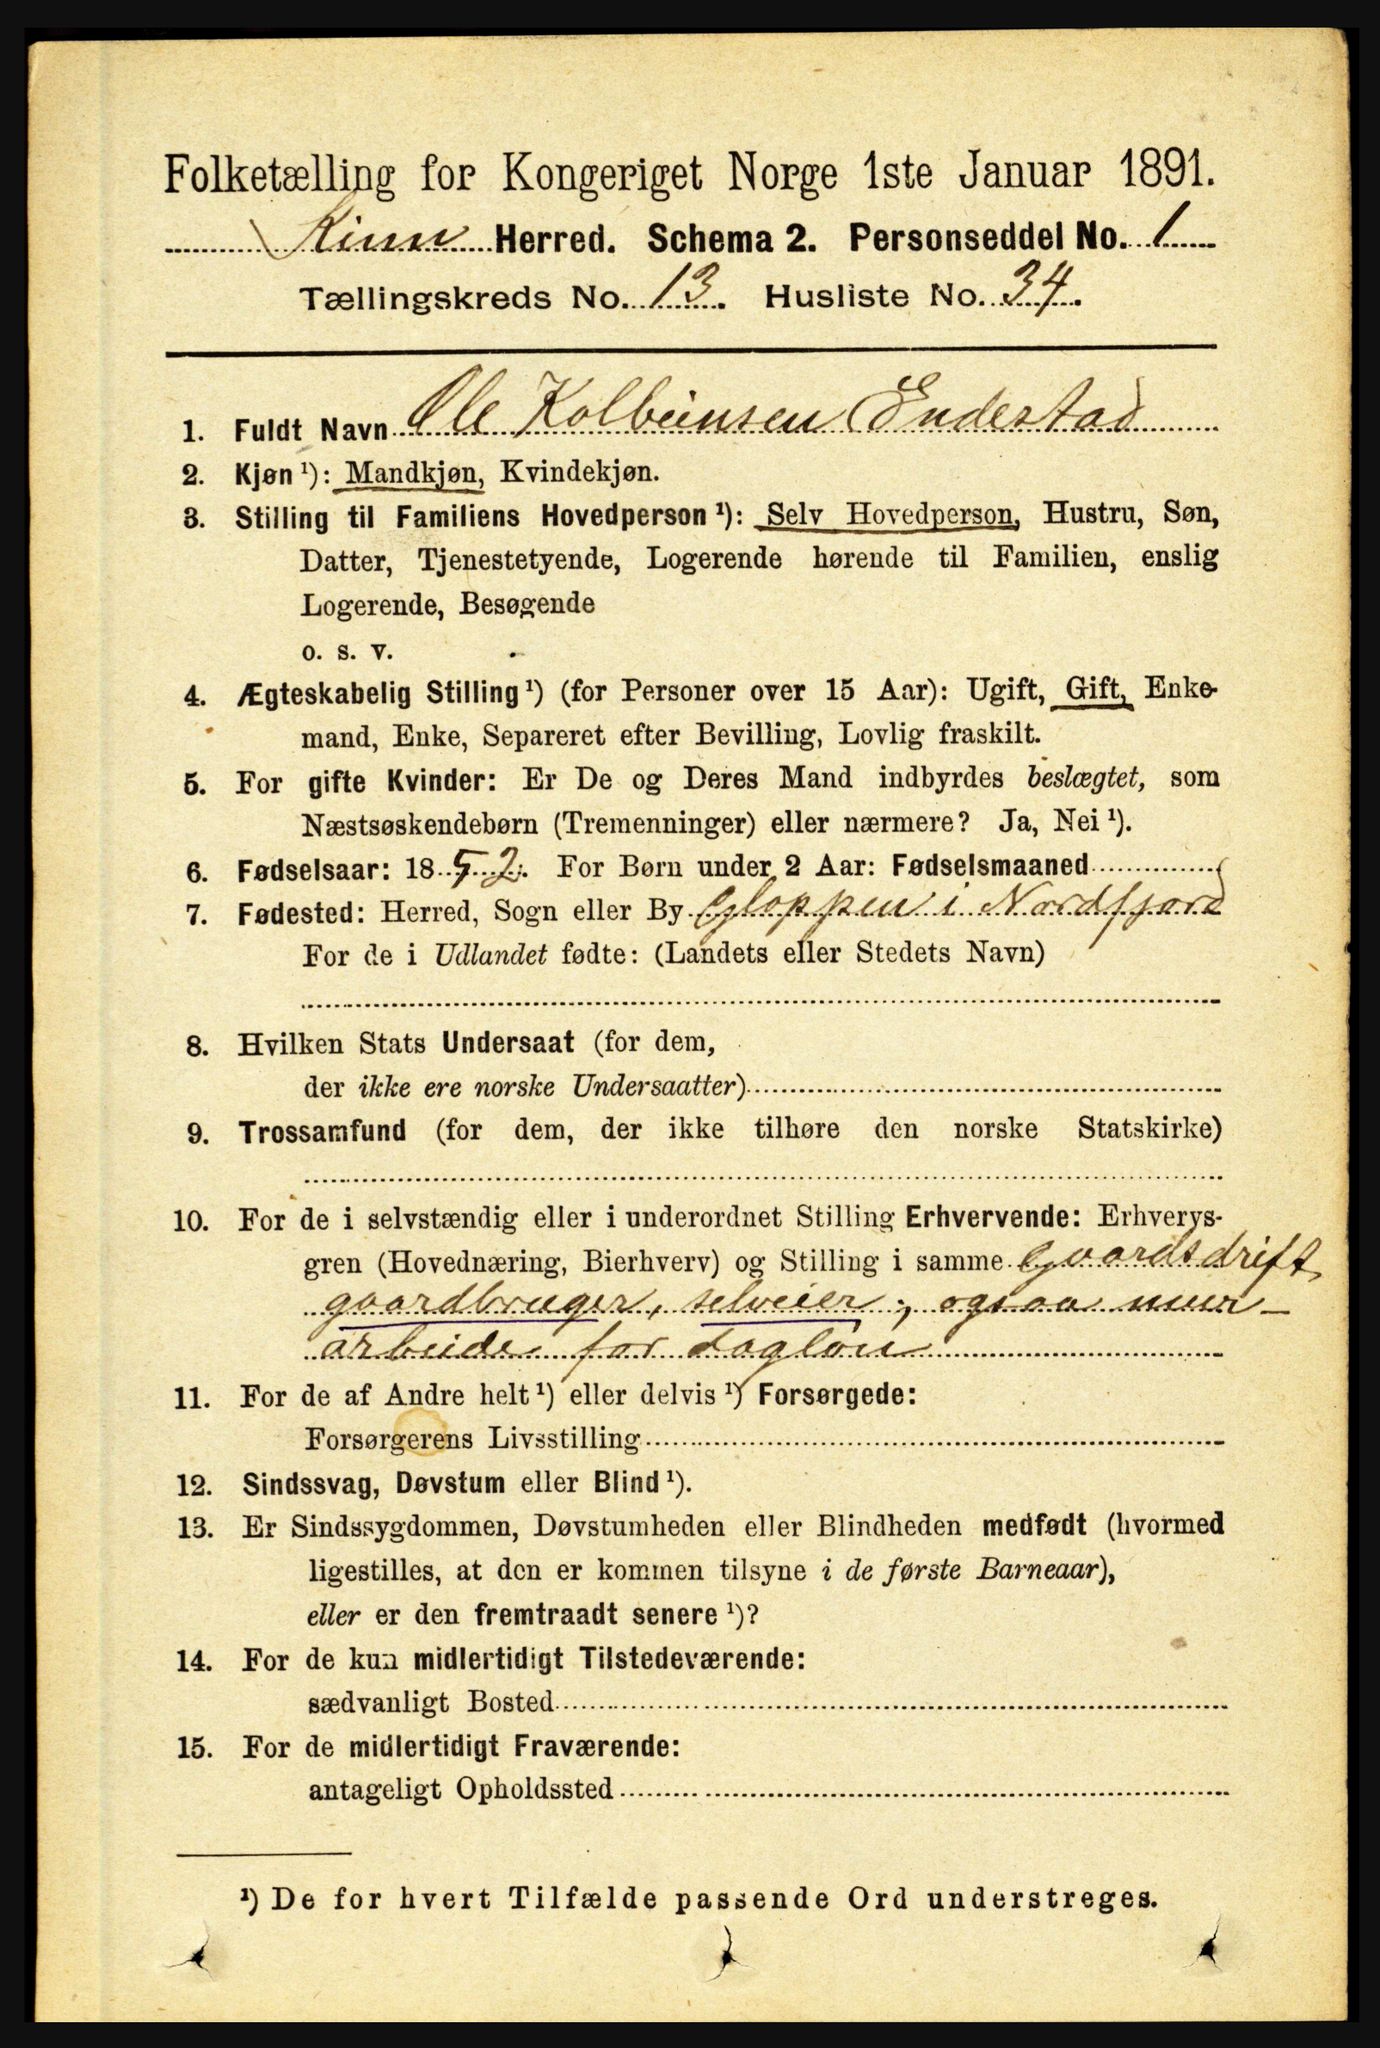 Folketælling for Kongeriget Norge 1ste Januar 1891.
Kinn Herred. Schema 2. Personseddel No. 1
Tællingskreds No. 13. Husliste No. 34.
1. Fuldt Navn Ole Kolbeinsen Endestad
2. Kjøn ¹): Mandkjøn, Kvindekjøn.
3. Stilling til Familiens Hovedperson ¹): Selv Hovedperson, Hustru, Søn,
Datter, Tjenestetyende, Logerende hørende til Familien, enslig
Logerende, Besøgende
o. s. v.
4. Ægteskabelig Stilling ¹) (for Personer over 15 Aar): Ugift, Gift, Enke-
mand, Enke, Separeret efter Bevilling, Lovlig fraskilt.
5. For gifte Kvinder: Er De og Deres Mand indbyrdes beslægtet, som
Næstsøskendebørn (Tremenninger) eller nærmere? Ja, Nei ¹).
6. Fødselsaar: 1852. For Børn under 2 Aar: Fødselsmaaned
7. Fødested: Herred, Sogn eller By Gloppen i Nordfjord
For de i Udlandet fødte: (Landets eller Stedets Navn)
8. Hvilken Stats Undersaat (for dem,
der ikke ere norske Undersaatter)
9. Trossamfund (for dem, der ikke tilhøre den norske Statskirke)
10. For de i selvstændig eller i underordnet Stilling Erhvervende: Erhvervs-
gren (Hovednæring, Bierhverv) og Stilling i samme Gaardsdrift
gaardbruger, selveier; ogsaa mur-
arbeide for dagløn
11. For de af Andre helt ¹) eller delvis ¹) Forsørgede:
Forsørgerens Livsstilling
12. Sindssvag, Døvstum eller Blind ¹).
13. Er Sindssygdommen, Døvstumheden eller Blindheden medfødt (hvormed
ligestilles, at den er kommen tilsyne i de første Barneaar),
eller er den fremtraadt senere ¹)?
14. For de kun midlertidigt Tilstedeværende:
sædvanligt Bosted
15. For de midlertidigt Fraværende:
antageligt Opholdssted
¹) De for hvert Tilfælde passende Ord understreges.